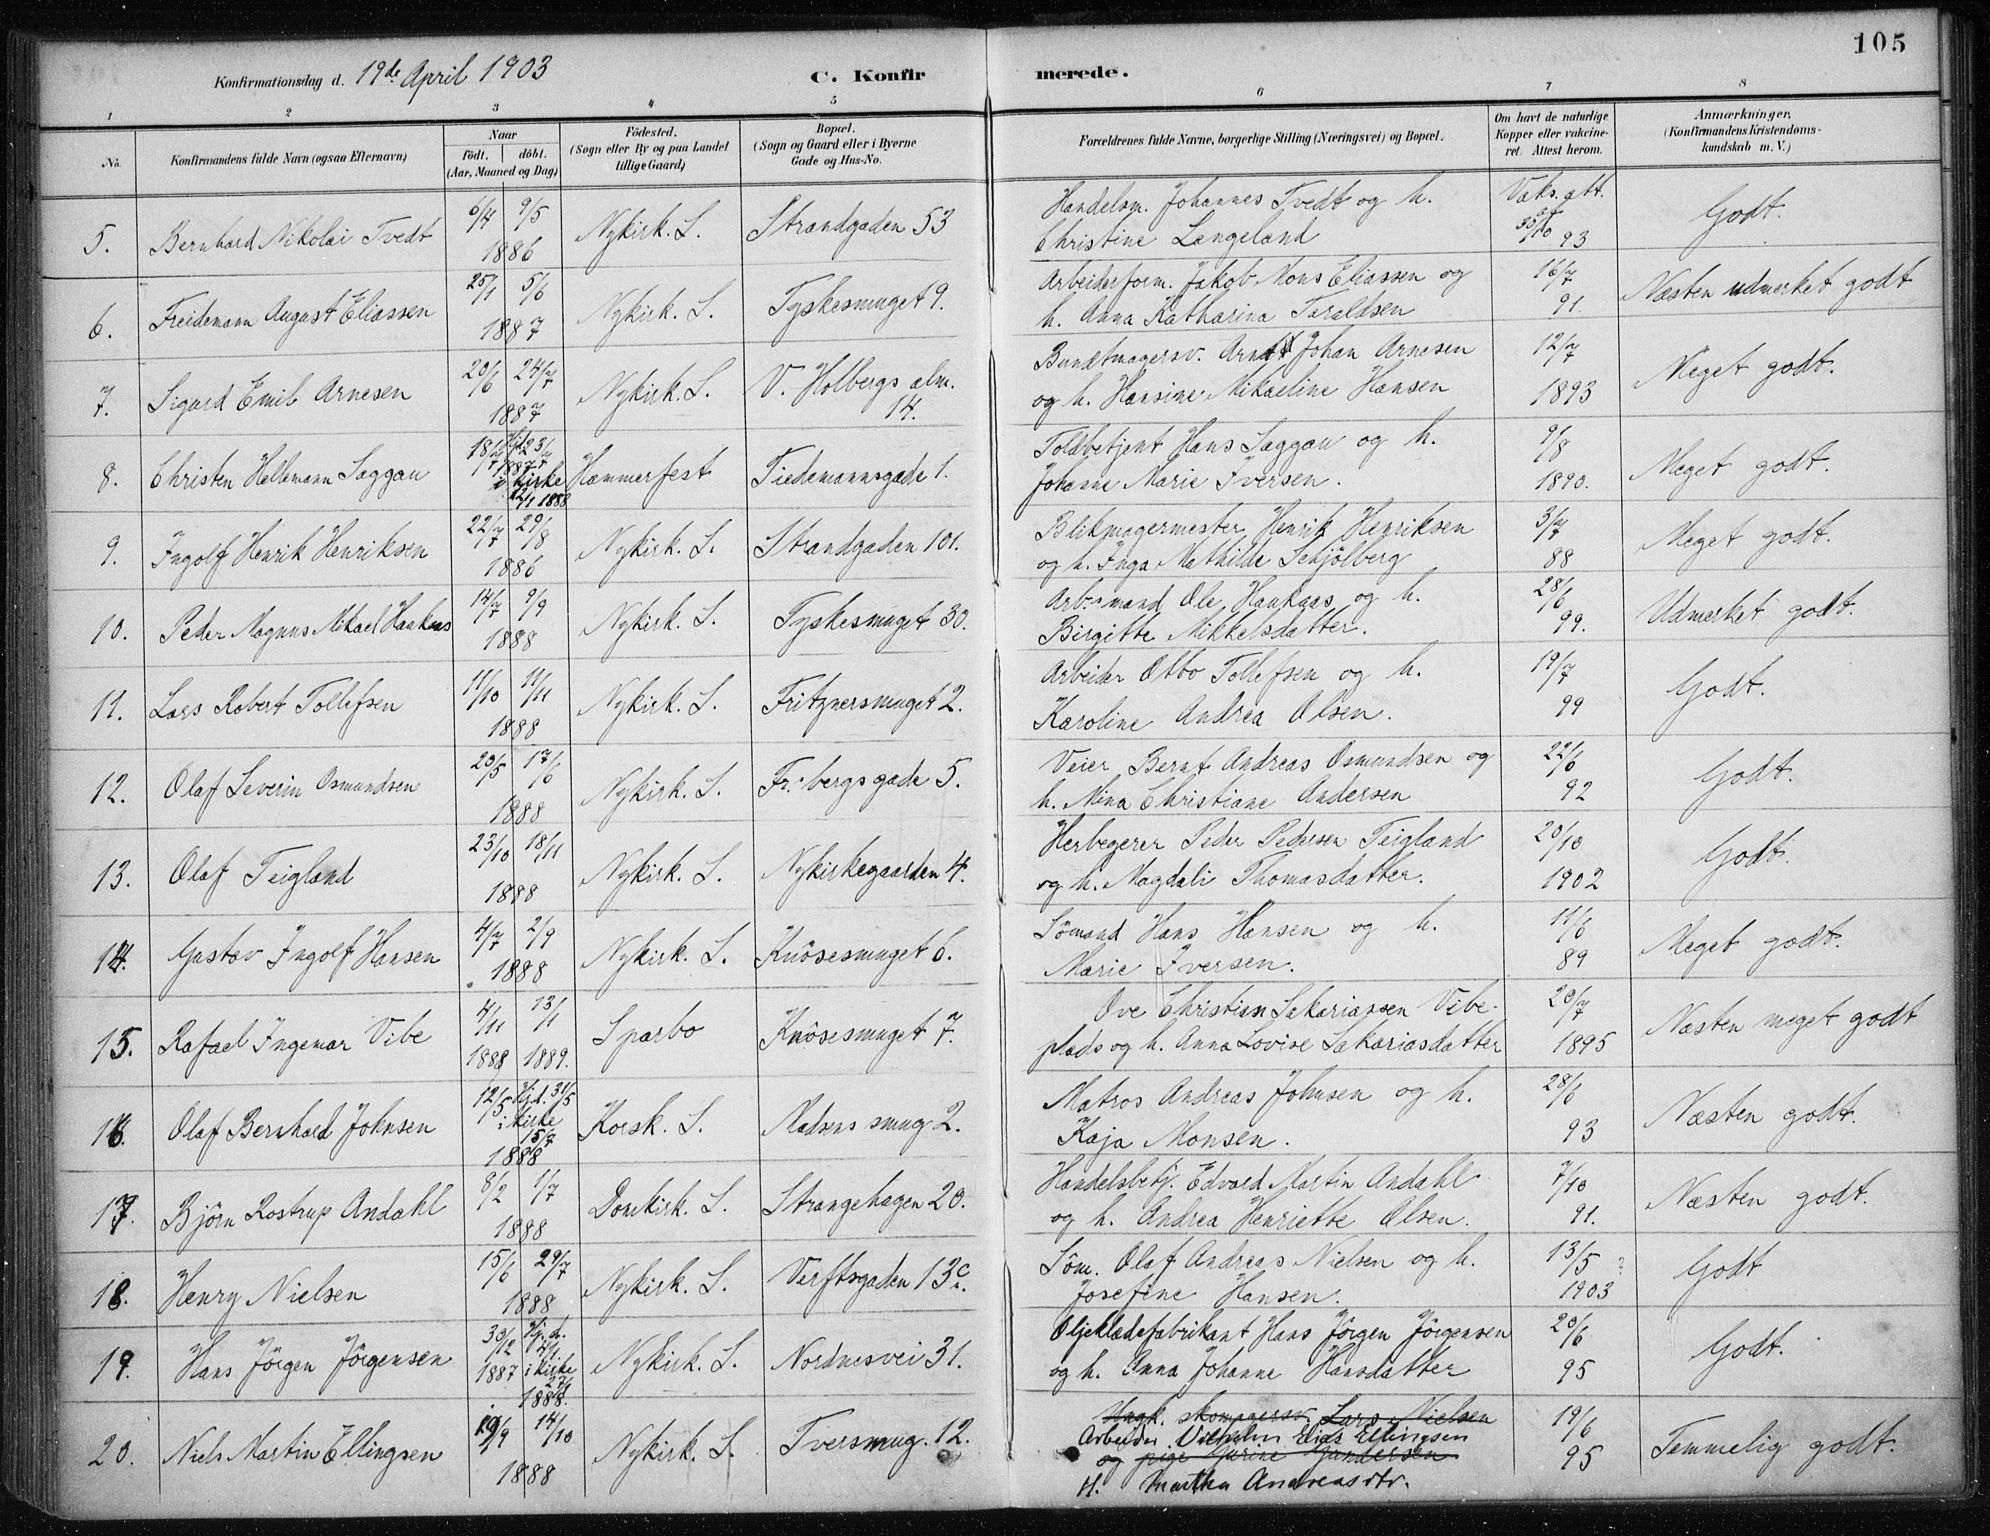 105
Konfirmationsdag d. 19de April 1903
C. Konfirmerede.
1 2 3 4 5 6 7 8
No.
Konfirmandens fulde Navn (ogsaa Efternavn)
Naar
födt. döbt.
(Aar, Maaned og Dag)
Födested.
(Sogn eller By og paa Landet
tillige Gaard)
Bopæl.
(Sogn og Gaard eller i Byerne
Gade og Hus-No.
Forældrenes fulde Navne, borgerlige Stilling (Næringsvei) og Bopæl.
Om havt de naturlige
Kopper eller vakcine-
ret. Attest herom.
Anmærkninger,
(Konfirmandens Kristendoms-
kundskab m. V.)
5. Bernhard Nikolai Tvedt 6/4 9/5 1886 Nykirk. S. Strandgaden 53 Handelsm. Johannes Tvedt og h.
Christine Langeland Vaks. att. 93 Godt.
6. Freidemann August Eliassen 25/1 5/6 1887 Nykirk. S. Tyskesmuget 9. Arbeiderform. Jakob Mons Eliassen og
h. Anna Katharina Taraldsen 16/7 91. Næsten udmerket godt
7. Sigurd Emil Arnesen 20/6 24/7 1887 Nykirk. S. V. Holbergs alm. 14. Buntmagersv. Arndt Johan Arnesen
og h. Hansine Mikaeline Hansen 12/7 1893 Meget godt.
8. Christen Hellemann Saggau 18/7 23/7 1887 i Kirke 12/1 1888 Hammerfest Tiedemannsgade 1. Toldbetjent Hans Saggau og h.
Johanne Marie Iversen. 9/8 1890. Meget godt.
9. Ingolf Henrik Henriksen 22/7 29/8 1886 Nykirk. S. Strandgaden 101. Blikmagermester Henrik Henriksen
og h. Inga Mathilde Schjölberg 3/7 88 Meget godt.
10. Peder Magnus Mikael Haukaas 14/7 9/9 1888 Nykirk. S. Tyskesmuget 30. Arb.mand Ole Haukaas og h.
Birgitte Mikkelsdatter. 28/6 99. Udmerket godt.
11. Lars Robert Tollefsen 11/10 11/11 1888 Nykirk. S. Fritznersmuget 2. Arbeider Otto Tollefsen og h.
Karoline Andrea Olsen. 19/7 99 Godt.
12. Olaf Severin Osmundsen 20/5 17/6 1888 Nykirk. S. Fr.bergsgade 5. Veier Bernt Andreas Osmundsen og
h. Mina Christiane Andersen 22/6 92 Godt.
13. Olaf Teigland 23/10 18/11 1888 Nykirk. S. Nykirkegaarden 4. Herbegerer Peder Pedersen Teigland
og h. Magdali Thomasdatter. 20/10 1902 Godt.
14. Gustav Ingolf Hansen 4/7 2/9 1888 Nykirk. S. Knösesmuget 6. Sömand Hans Hansen og h.
Marie Iversen. 11/6 89 Meget godt.
15. Rafael Ingemar Vibe 4/11 1888 13/1 1889. Sparbo Knösesmuget 7. Ove Christian Sakariassen Vibe-
plads og h. Anna Lovise Sakariasdatter 20/7 1895 Næsten meget godt
16. Olaf Bernhard Johnsen 12/5 Hjd. 31/5 i Kirke 15/7 1888 Korsk. S. Madsens smug 2. Matros Andreas Johnsen og h.
Kaja Monsen. 28/6 93 Næsten godt.
17. Björn Rostrup Andahl 8/2 1/7 1888 Domkirk. S. Strangehagen 20. Handelsbetj. Edvard Martin Andahl
og h. Andrea Henriette Olsen. 7/10 91. Næsten godt.
18. Henry Nielsen 15/6 29/7 1888 Nykirk. S. Verftsgaden 13c. Söm. Olaf Andreas Nielsen og h.
Josefine Hansen. 13/5 1903 Godt
19. Hans Jörgen Jörgensen 30/12 1887 Hj.d. i Kirke 1888. Nykirk. S. Nordnesvei 31. Oljeklædefabrikant Hans Jörgen Jörgensen
og h. Anna Johanne Hansdatter 20/6 95 Godt.
20. Niels Martin Ellingsen 19/9 14/10 1888 Nykirk. S. Tversmug. 12. Ungk. skomagersv. Lars Nielsen
Arbeider Vilhelm Elias Ellingsen
og pige Gurine Gundersen
H. Martha Andreasdtr. 19/6 95 Temmelig godt.